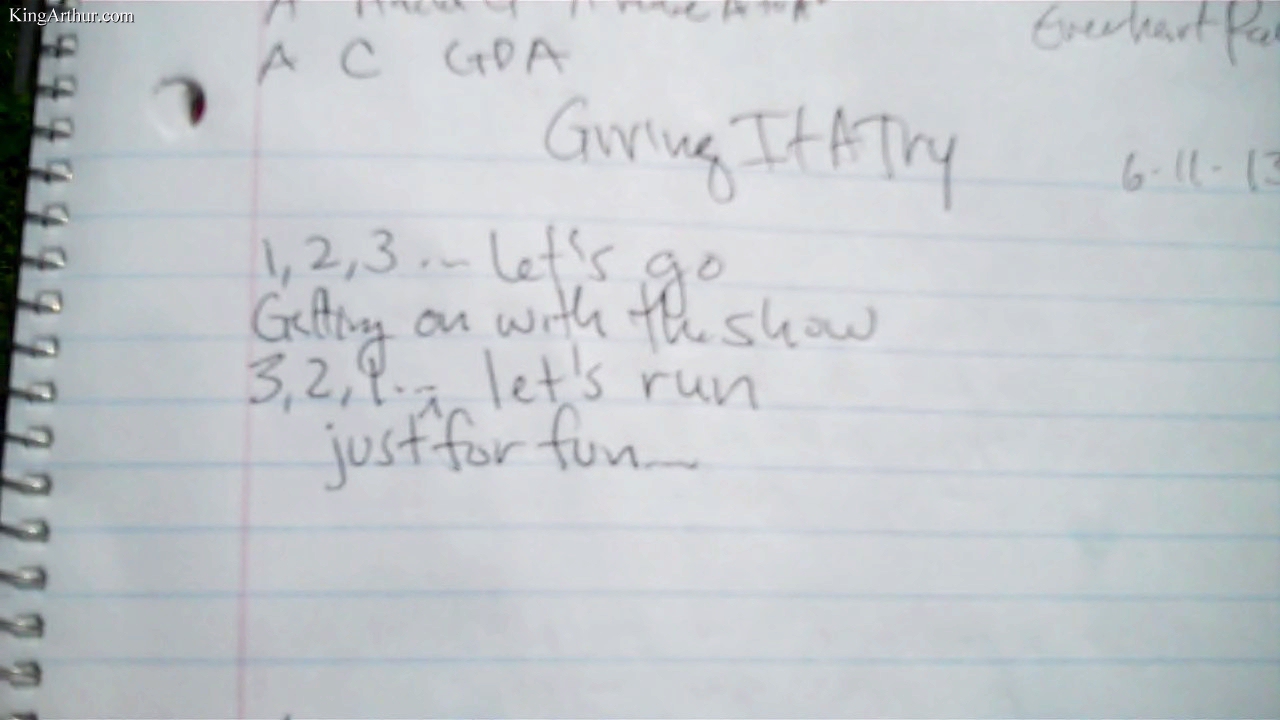 KingArthur.com
A C GDA
Giving It A Try
6-11-13
1,2,3... let's go
Getting on with the show
3,2,1... let's run
just for fun...